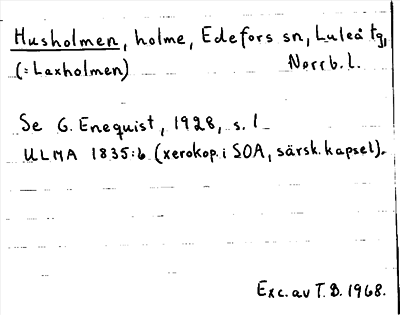 Husholmen, holme, Edefors sn, Luleå tg,
(=Laxholmen) Norrb.l.
Se G. Enequist, 1928, s. 1
ULMA 1835:6 (xerokop. i SOA, särsk. kapsel).
Exc. av T.B. 1968.